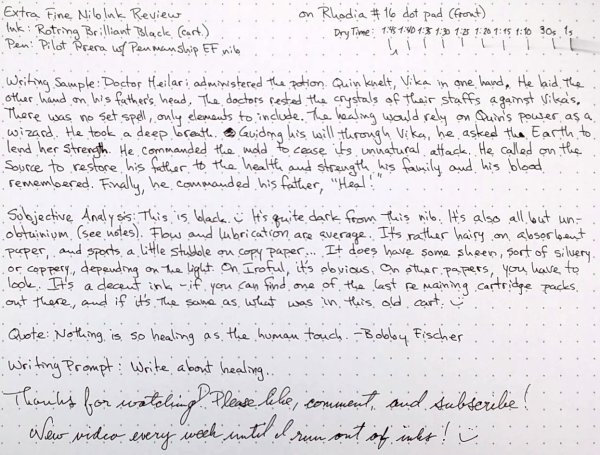 Extra Fine Nib Ink Review on Rhodia #16 dot pad (front)
Ink: Rotring Brilliant Black (cart.) Dry Time: 1:45 1:40 1:35 1:30 1:25 1:20 1:15 1:10 30s 1s
Pen: Pilot Prera w/Penmanship EF nib
Writing Sample: Doctor Meilari administered the potion. Quin knelt, Vika in one hand. He laid the
other hand on his father's head. The doctors rested the crystals of their staffs against Vika's.
There was no set spell, only elements to include. The healing would rely on Quin's power as a
wizard. He took a deep breath. Guiding his will through Vika, he asked the Earth to
lend her strength. He commanded the mold to cease its unnatural attack. He called on the
Source to restore his father to the health and strength his family and his blood
remembered. Finally, he commanded his father, "Heal!"
Subjective Analysis: This is black. It's quite dark from this nib. It's also all but un-
obtainium (see notes). Flow and lubrication are average. It's rather hairy on absorbent
paper, and sports a little stubble on copy paper... It does have some sheen, sort of silvery
or coppery, depending on the light. On Iroful, it's obvious. On other papers, you have to
look. It's a decent ink - if you can find one of the last remaining cartridge packs
out there, and if it's the same as what was in this old cart.
Quote: Nothing is so healing as the human touch. -Bobby Fischer
Writing Prompt: Write about healing.
Thanks for watching! Please like, comment, and subscribe!
New video every week until I run out of inks!